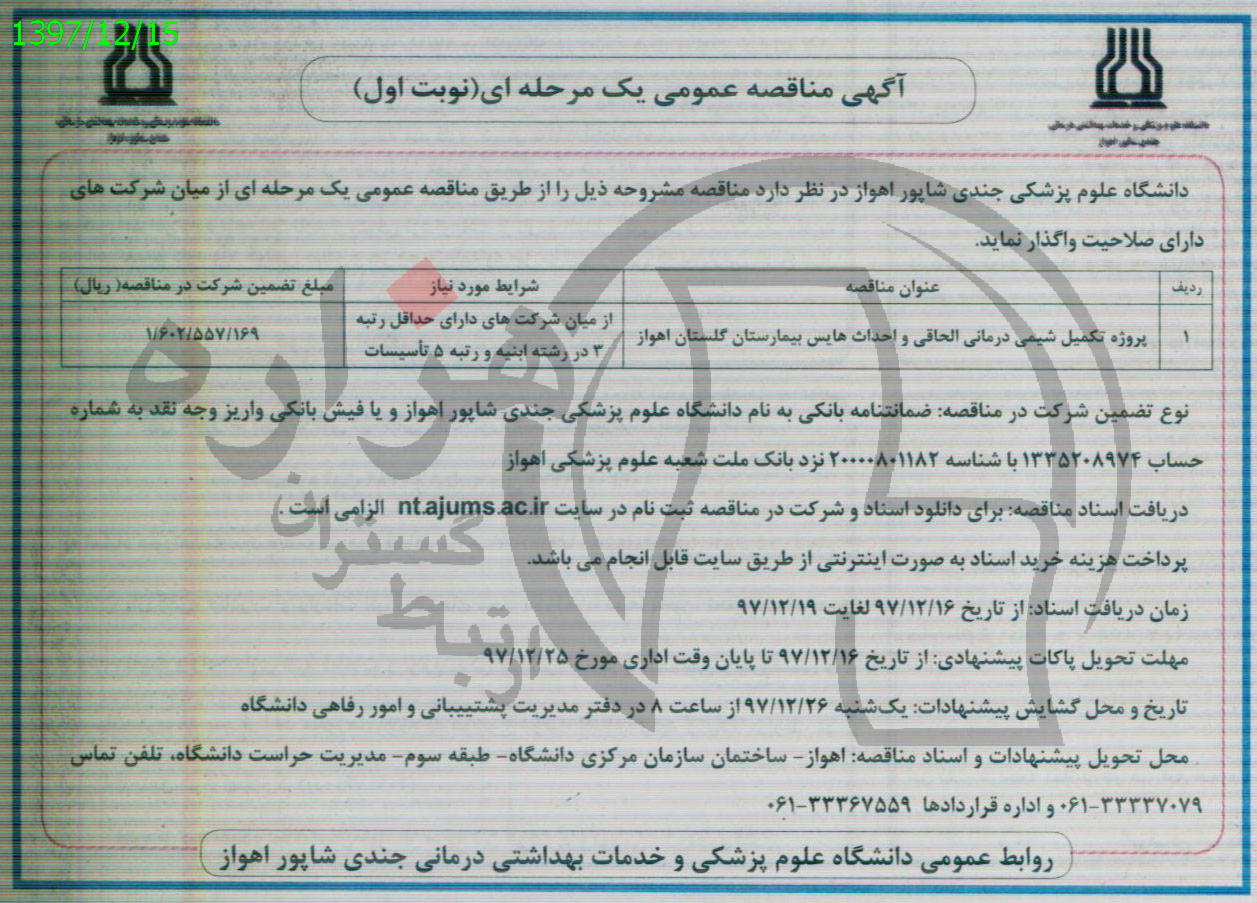 1397/12/15
آگهی مناقصه عمومی یک مرحله ای(نوبت اول)
دانشگاه علوم پزشکی و خدمات بهداشتی درمانی
جندی شاپور اهواز
دانشگاه علوم پزشکی و خدمات بهداشتی درمانی
جندی شاپور اهواز
دانشگاه علوم پزشکی جندی شاپور اهواز در نظر دارد مناقصه مشروحه ذیل را از طریق مناقصه عمومی یک مرحله ای از میان شرکت های
دارای صلاحیت واگذار نماید.
ردیف عنوان مناقصه شرایط مورد نیاز مبلغ تضمین شرکت در مناقصه( ریال)
۱ پروژه تکمیل شیمی درمانی الحاقی و احداث هایس بیمارستان گلستان اهواز از میان شرکت های دارای حداقل رتبه ۱/۶۰۲/۵۵۷/۱۶۹
۳ در رشته ابنیه و رتبه ۵ تأسیسات
نوع تضمین شرکت در مناقصه: ضمانتنامه بانکی به نام دانشگاه علوم پزشکی جندی شاپور اهواز و یا فیش بانکی واریز وجه نقد به شماره
حساب ۱۳۳۵۲۰۸۹۷۴ با شناسه ۲۰۰۰۰۸۰۱۱۸۲ نزد بانک ملت شعبه علوم پزشکی اهواز
دریافت اسناد مناقصه: برای دانلود اسناد و شرکت در مناقصه ثبت نام در سایت nt.ajums.ac.ir الزامی است .
پرداخت هزینه خرید اسناد به صورت اینترنتی از طریق سایت قابل انجام می باشد.
زمان دریافت اسناد: از تاریخ ۹۷/۱۲/۱۶ لغایت ۹۷/۱۲/۱۹
مهلت تحویل پاکات پیشنهادی: از تاریخ ۹۷/۱۲/۱۶ تا پایان وقت اداری مورخ ۹۷/۱۲/۲۵
تاریخ و محل گشایش پیشنهادات: یک‌شنبه ۹۷/۱۲/۲۶ از ساعت ۸ در دفتر مدیریت پشتییبانی و امور رفاهی دانشگاه
محل تحویل پیشنهادات و اسناد مناقصه: اهواز- ساختمان سازمان مرکزی دانشگاه- طبقه سوم- مدیریت حراست دانشگاه، تلفن تماس
۰۶۱-۳۳۳۳۷۰۷۹ و اداره قراردادها ۰۶۱-۳۳۳۶۷۵۵۹
روابط عمومی دانشگاه علوم پزشکی و خدمات بهداشتی درمانی جندی شاپور اهواز
هزاره
گستران
ارتباط